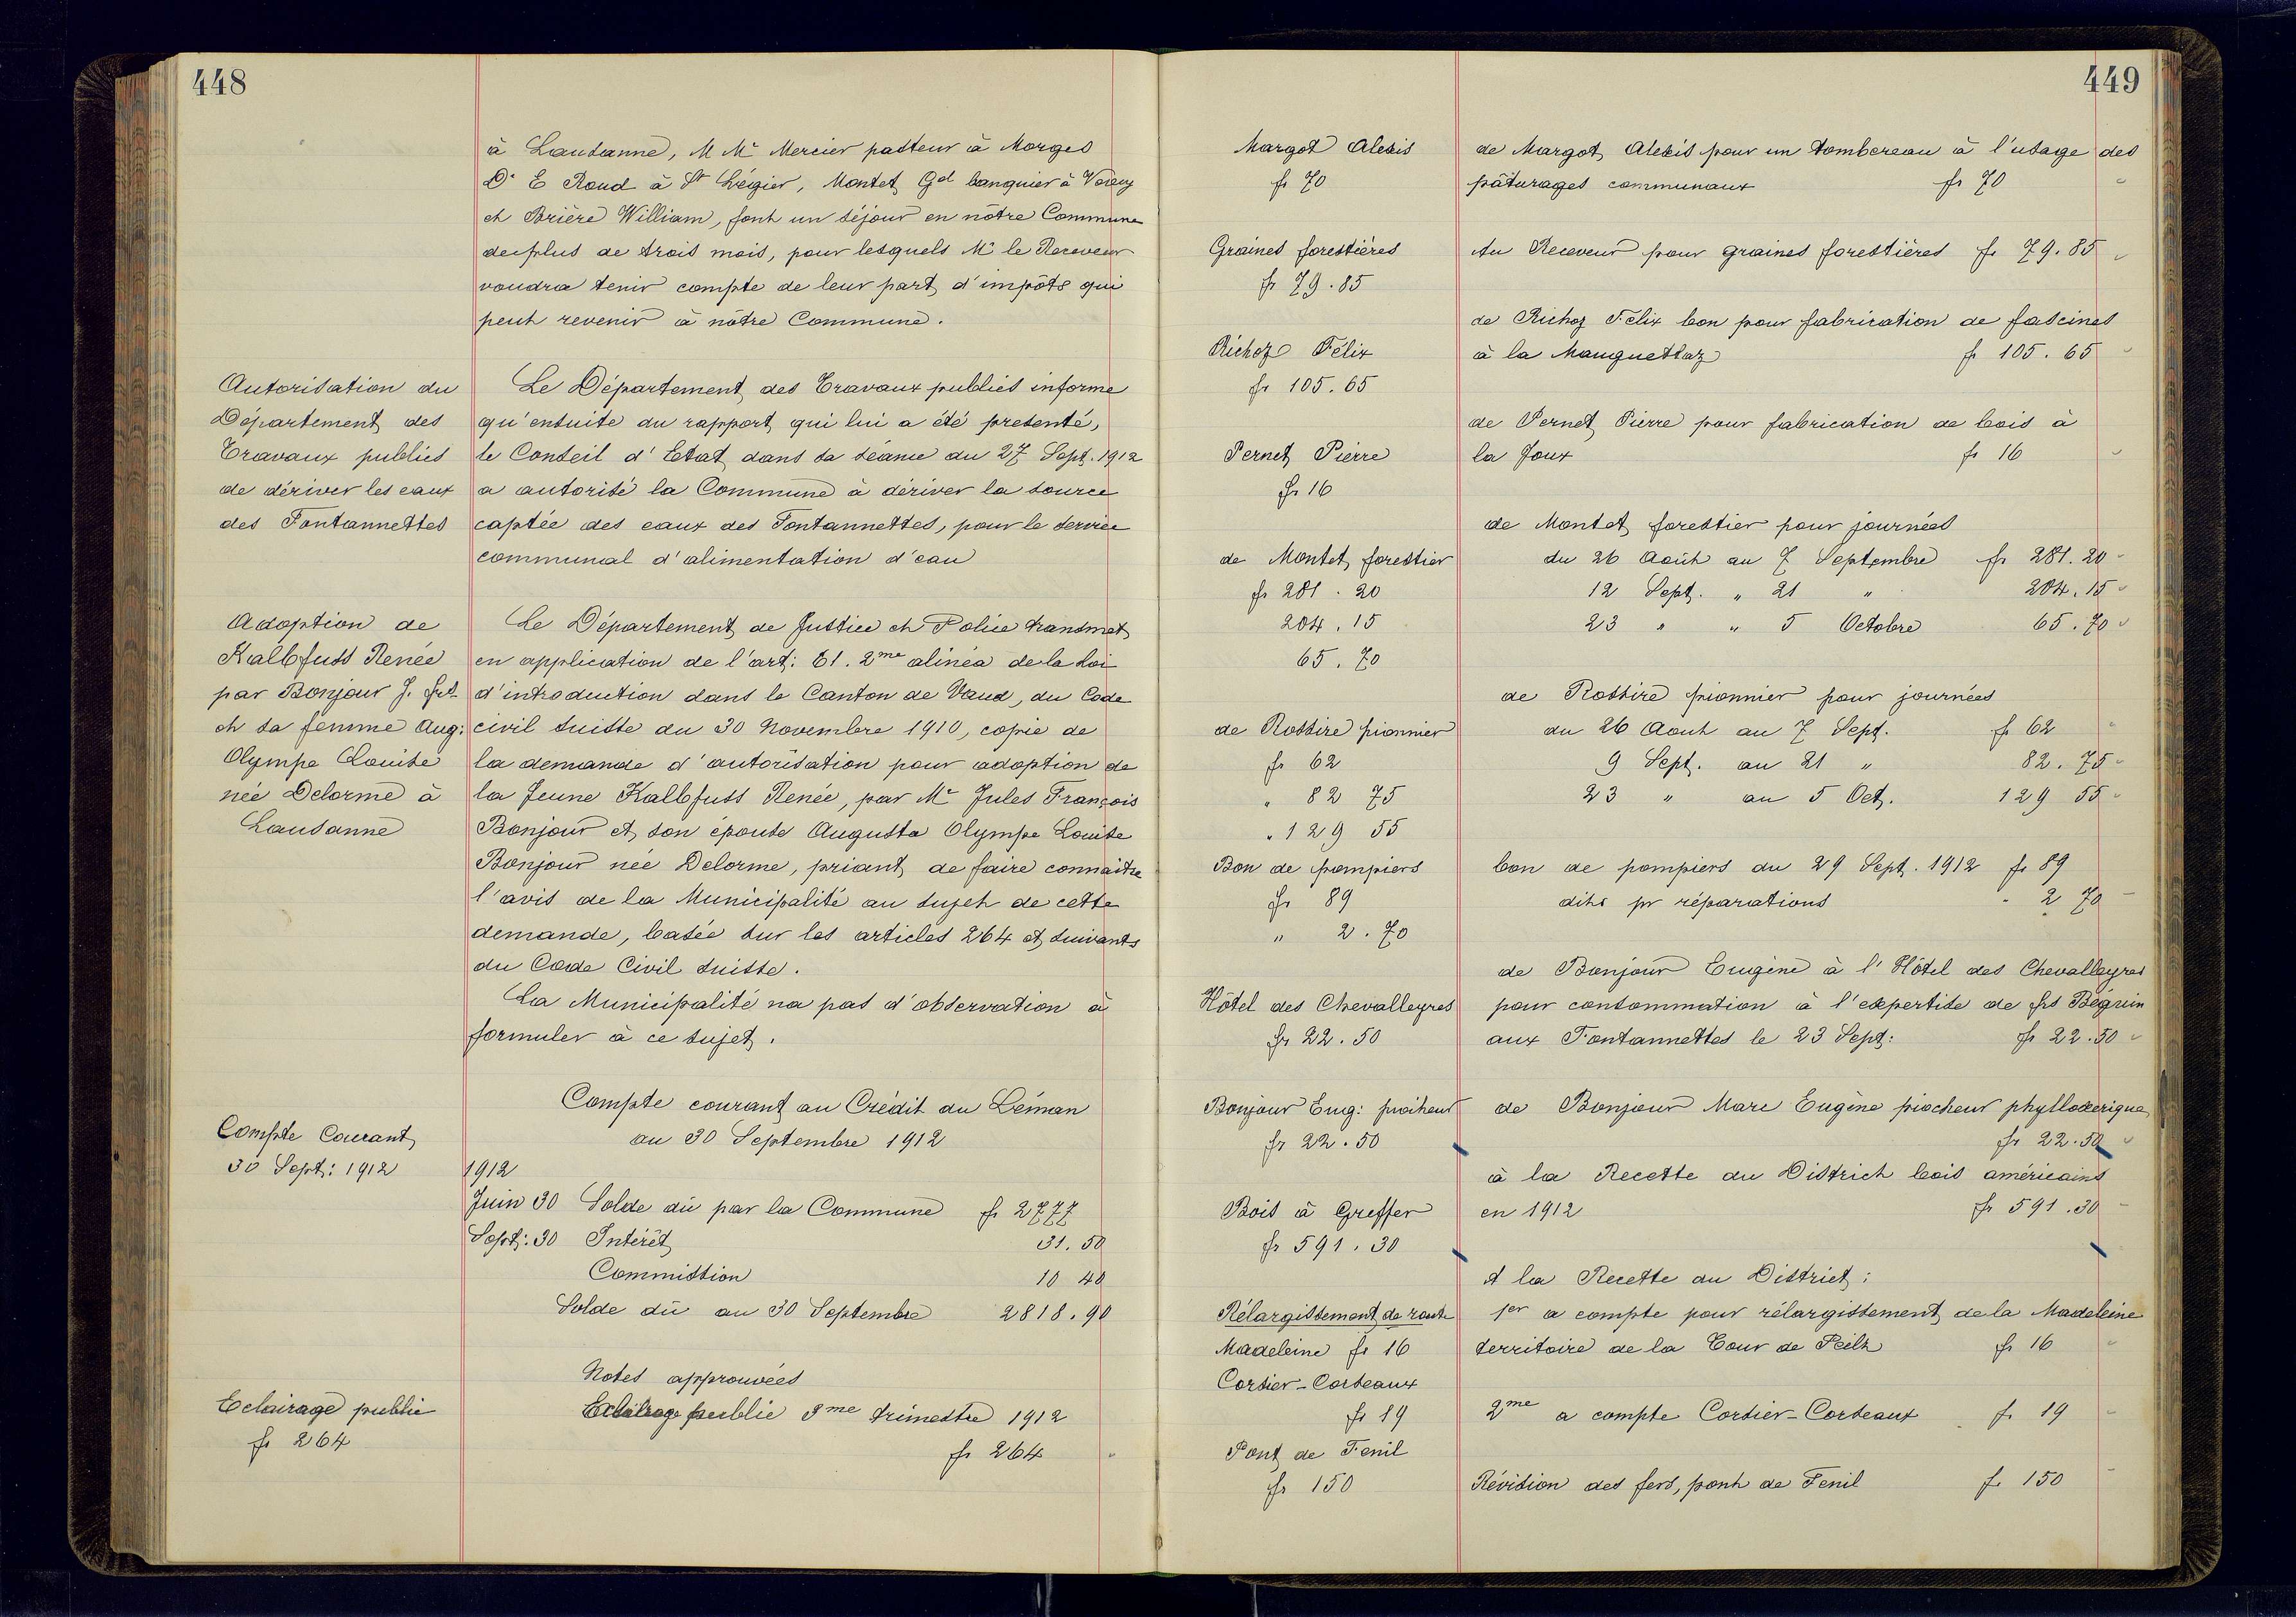 448
à Lausanne, M Mr Mercier pasteur à Morges
Dr E Roud à St Légier, Montet Gd banquier à Vevey
et Brière William, font un séjour en nôtre Commune
de plus de trois mois, pour lesquels Mr le Receveur
voudra tenir compte de leur part d'impôts qui
peut revenir à nôtre Commune.
Autorisation du
Département des
Travaux publics
de dériver les eaux
des Fontannettes
Le Département des Travaux publics informe
qu'ensuite du rapport qui lui a été presenté,
le Conseil d'Etat dans sa séance du 27 Sept. 1912
a autorisé la Commune à dériver la source
captée des eaux des Fontannettes, pour le service
communal d'alimentation d'eau
Adoption de
Kalbfuss Renée
par Bonjour J. Fs
et sa femme Aug:
Olympe Louise
née Delorme à
Lausanne
Le Département de Justice et Police transmet
en application de l'art: 51. 2me alinéa de la Loi
d'introduction dans le Canton de Vaud, du Code
civil suisse du 30 Novembre 1910, copie de
la demande d'autorisation pour adoption de
la Jeune Kalbfuss Renée, par Mr Jules François
Bonjour et son épouse Augusta Olympe Louise
Bonjour née Delorme, priant de faire connaitre
l'avis de la Municipalité au sujet de cette
demande, basée sur les articles 264 et suivants
du Code Civil suisse.
La Municipalité na pas d'observation à
formuler à ce sujet.
Compte Courant
30 Sept: 1912
Compte courant au Crédit du Léman
au 30 Septembre 1912
1912
Juin 30 Solde dû par la Commune fr 2777
Sept: 30 Intérêt 31.50
Commission 10 40
Solde dû au 30 Septembre 2818.90
Notes approuvées
Eclairage public
fr 264
Eclairage public 3me trimestre 1912
fr 264
449
Margot Alexis
fr 70
de Margot Alexis pour un tombereau à l'usage des
pâturages communaux fr 70
Graines forestières
fr 79.85
Au Receveur pour graines forestières fr 79.85
Richoz Félix
fr 105.65
de Richoz Félix bon pour fabrication de fascines
à la Mauguettaz fr 105.65
Pernet Pierre
fr 16
de Pernet Pierre pour fabrication de bois à
la Joux fr 16
de Montet forestier
fr 281.20
204.15
65.70
de Montet forestier pour journées
du 26 Août au 7 Septembre fr 281.20
12 Sept. " 21 " 204.15
23 " " 5 Octobre 65.70
de Rossire pionnier
fr 62
" 82 75
" 129 55
de Rossire pionnier pour journées
du 26 Aout au 7 Sept. fr 62
9 Sept. au 21 " 82.75
23 " au 5 Oct. 129 55
Bon de pompiers
fr 89
" 2.70
bon de pompiers du 29 Sept. 1912 fr 89
dits pr réparations " 2 70
Hôtel des Chevalleyres
fr 22.50
de Bonjour Eugène à l'Hôtel des Chevalleyres
pour consommation à l'expertise de frs Béguin
aux Fontannettes le 23 Sept: fr 22.50
Bonjour Eug: piocheur
fr 22.50
de Bonjour Marc Eugène piocheur phylloxerique
fr 22.50
Bois à Greffer
fr 591.30
à la Recette du District bois américains
en 1912 fr 591.30
A la Recette du District:
Rélargissement de route
Madeleine fr 16
1er a compte pour rélargissement de la Madeleine
territoire de la Tour de Peilz fr 16
Corsier-Corseaux
fr 19
2me a compte Corsier-Corseaux fr 19
Pont de Fenil
fr 150
Révision des fers, pont de Fenil fr 150